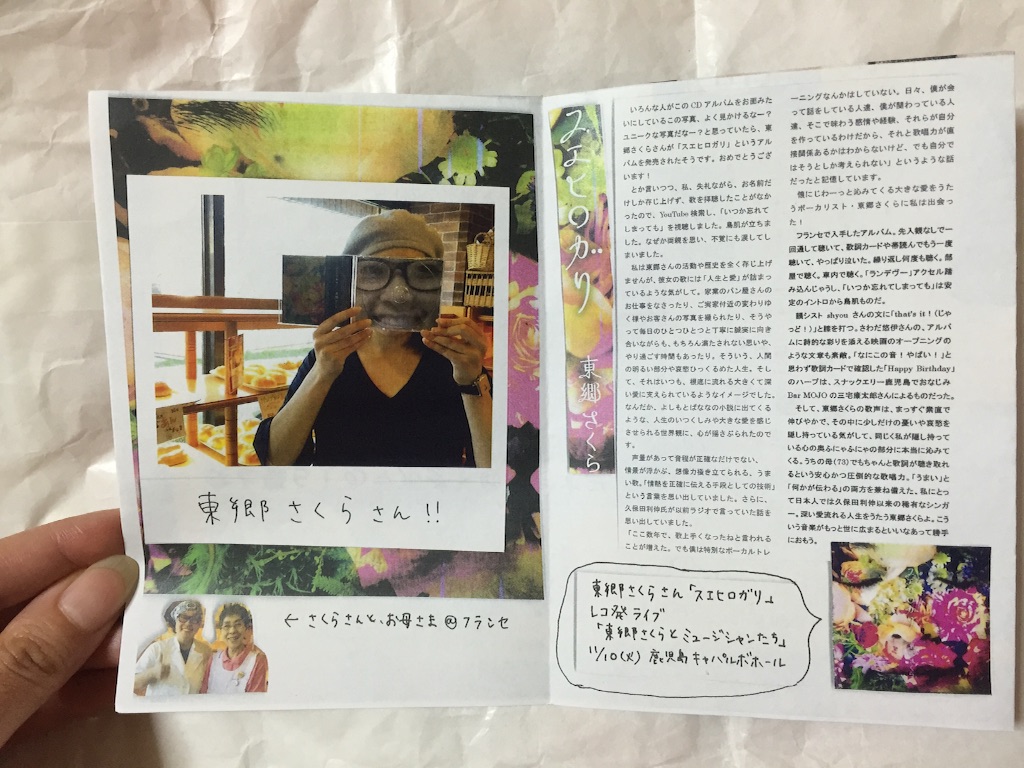 東郷さくらさん!!
← さくらさんと、お母さま@フランセ
スエヒロガリ
東郷さくら
いろんな人がこのCDアルバムをお面みた
いにしているこの写真、よく見かけるなー?
ユニークな写真だなー?と思っていたら、東
郷さくらさんが「スエヒロガリ」というアル
バムを発売されたそうです。おめでとうござ
います!
とか言いつつ、私、失礼ながら、お名前だ
けしか存じ上げず、歌を拝聴したことがなか
ったので、YouTube検索し、「いつか忘れて
しまっても」を視聴しました。鳥肌が立ちま
した。なぜか両親を思い、不覚にも涙してし
まいました。
私は東郷さんの活動や歴史を全く存じ上げ
ませんが、彼女の歌には「人生と愛」が詰まっ
ているような気がして。家業のパン屋さんの
お仕事をなさったり、ご実家付近の変わりゆ
く様やお客さんの写真を撮られたり、そうや
って毎日のひとつひとつと丁寧に誠実に向き
合いながらも、もちろん満たされない思いや、
やり過ごす時間もあったり。そういう、人間
の明るい部分や哀愁ひっくるめた人生。そし
て、それはいつも、根底に流れる大きくて深
い愛に支えられているようなイメージでした。
なんだか、よしもとばななの小説に出てくる
ような、人生のいつくしみや大きな愛を感じ
させられる世界観に、心が揺さぶられたので
す。
声量があって音程が正確なだけでない、
情景が浮かぶ、想像力掻き立てられる、うま
い歌。「情熱を正確に伝える手段としての技術」
という言葉を思い出していました。さらに、
久保田利伸氏が以前ラジオで言っていた話を
思い出していました。
「ここ数年で、歌上手くなったねと言われる
ことが増えた。でも僕は特別なボーカルトレ
ーニングなんかはしていない。日々、僕が会
って話をしている人達、僕が関わっている人
達、そこで味わう感情や経験、それらが自分
を作っているわけだから、それと歌唱力が直
接関係あるかはわからないけど、でも自分で
はそうとしか考えられない」というような話
だったと記憶しています。
僕にじわーっと沁みてくる大きな愛をうた
うボーカリスト・東郷さくらに私は出会っ
た!
フランセで入手したアルバム。先入観なしで一
回通して聴いて、歌詞カードや帯読んでもう一度
聴いて、やっぱり泣いた。繰り返し何度も聴く。部
屋で聴く。車内で聴く。「ランデヴー」アクセル踏
み込んじゃうし、「いつか忘れてしまっても」は安
定のイントロから鳥肌ものだ。
鏡シスト shyou さんの文に「that's it!(じゃ
っど!)」と膝を打つ。さわだ悠伊さんの、アルバ
ムに詩的な彩りを添える映画のオープニングの
ような文章も素敵。「なにこの音!やばい!」と
思わず歌詞カードで確認した「Happy Birthday」
のハープは、スナックエリー鹿児島でおなじみ
Bar MOJOの三宅康太郎さんによるものだった。
そして、東郷さくらの歌声は、まっすぐ素直で
伸びやかで、その中に少しだけの憂いや哀愁を
隠し持っている気がして、同じく私が隠し持って
いる心の奥ふにゃふにゃの部分に本当に沁みて
くる。うちの母(73)でもちゃんと歌詞が聴き取れ
るという安心かつ圧倒的な歌唱力。「うまい」と
「何かが伝わる」の両方を兼ね備えた、私にとっ
て日本人では久保田利伸以来の稀有なシンガ
ー。深い愛流れる人生をうたう東郷さくらよ。こう
いう音楽がもっと世に広まるといいなあって勝手
におもう。
東郷さくらさん「スエヒロガリ」
レコ発ライブ
「東郷さくらとミュージシャンたち」
11/10(火) 鹿児島キャパルボホール